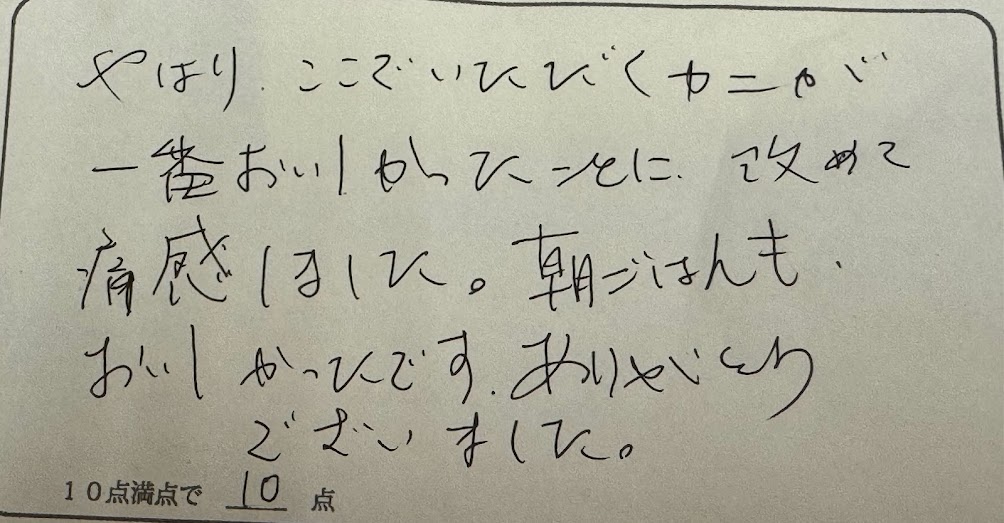 やはり、ここでいただくカニが
一番おいしかったことに、改めて
痛感しました。朝ごはんも、
おいしかったです。ありがとう
ございました。
10点満点で 10 点